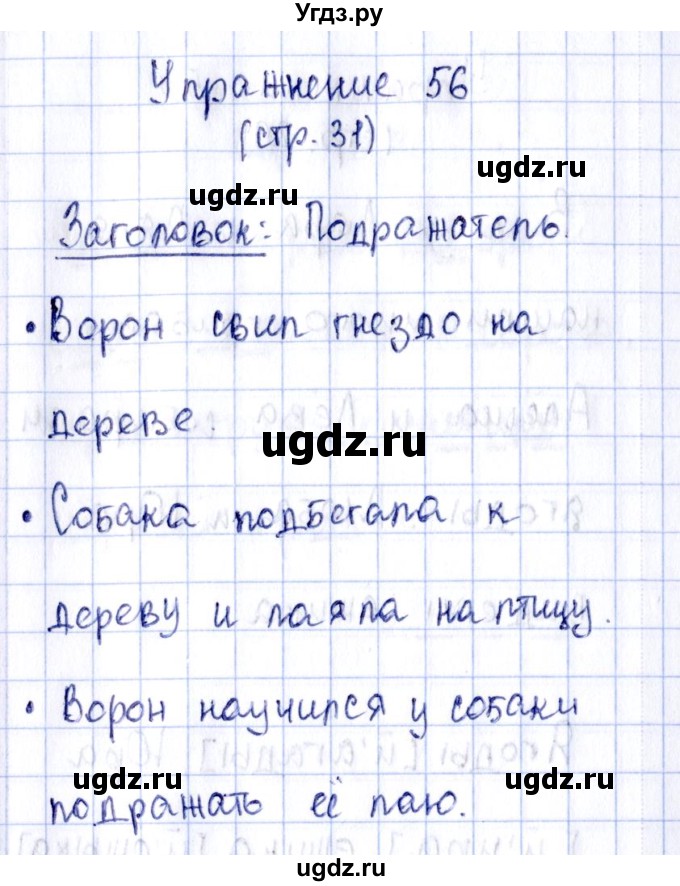 Угдз.ру
Упражнение 56
(стр. 31)
ugdz.ru
ugdz.ru
Заголовок: Подражатель.
• Ворон свил гнездо на
дереве.
ugdz.ru
• Собака подбегала к
дереву и лаяла на птицу.
• Ворон научился у собаки
ugdz.ru
ugdz.ru
подражать её лаю.
ugdz.ru